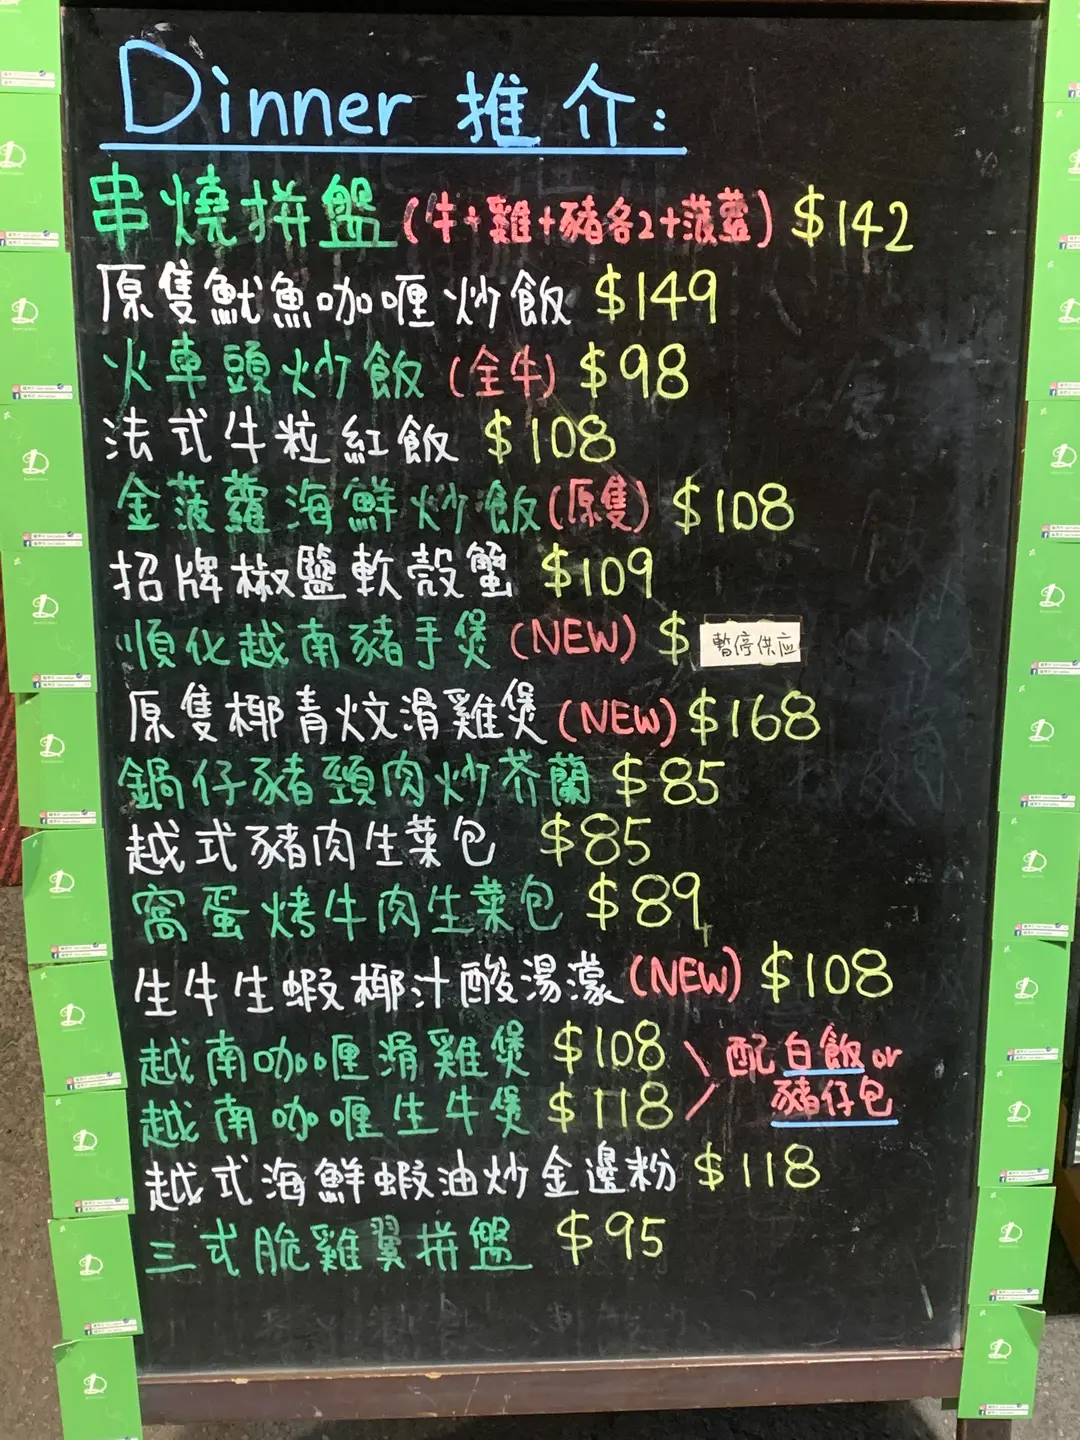 Dinner 推介:
串燒拼盤 (牛+雞+豬各2+菠蘿) $142
原隻魷魚咖喱炒飯 $149
火車頭炒飯 (全牛) $98
法式牛粒紅飯 $108
金菠蘿海鮮炒飯(原隻) $108
招牌椒鹽軟殼蟹 $109
順化越南豬手煲 (NEW) $ 暫停供应
原隻椰青炆滑雞煲 (NEW) $168
鍋仔豬頸肉炒芥蘭 $85
越式豬肉生菜包 $85
窩蛋烤牛肉生菜包 $89
生牛生蝦椰汁酸湯濛 (NEW) $108
越南咖喱滑雞煲 $108
越南咖喱生牛煲 $118
配白飯or
豬仔包
越式海鮮蝦油炒金邊粉 $118
三式脆雞翼拼盤 $95